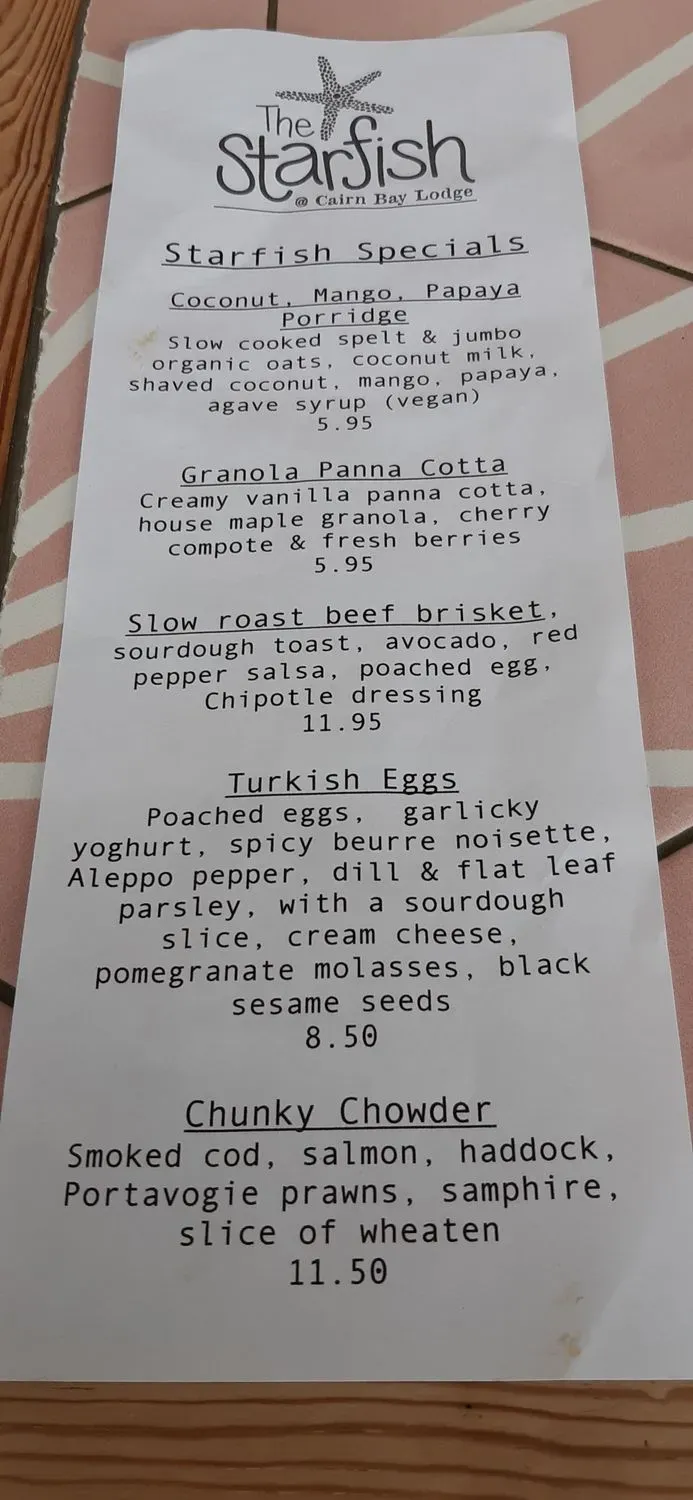 The
Starfish
@ Cairn Bay Lodge
Starfish Specials
Coconut, Mango, Papaya
Porridge
Slow cooked spelt & jumbo
organic oats, coconut milk,
shaved coconut, mango, papaya,
agave syrup (vegan)
5.95
Granola Panna Cotta
Creamy vanilla panna cotta,
house maple granola, cherry
compote & fresh berries
5.95
Slow roast beef brisket,
sourdough toast, avocado, red
pepper salsa, poached egg,
Chipotle dressing
11.95
Turkish Eggs
Poached eggs, garlicky
yoghurt, spicy beurre noisette,
Aleppo pepper, dill & flat leaf
parsley, with a sourdough
slice, cream cheese,
pomegranate molasses, black
sesame seeds
8.50
Chunky Chowder
Smoked cod, salmon, haddock,
Portavogie prawns, samphire,
slice of wheaten
11.50